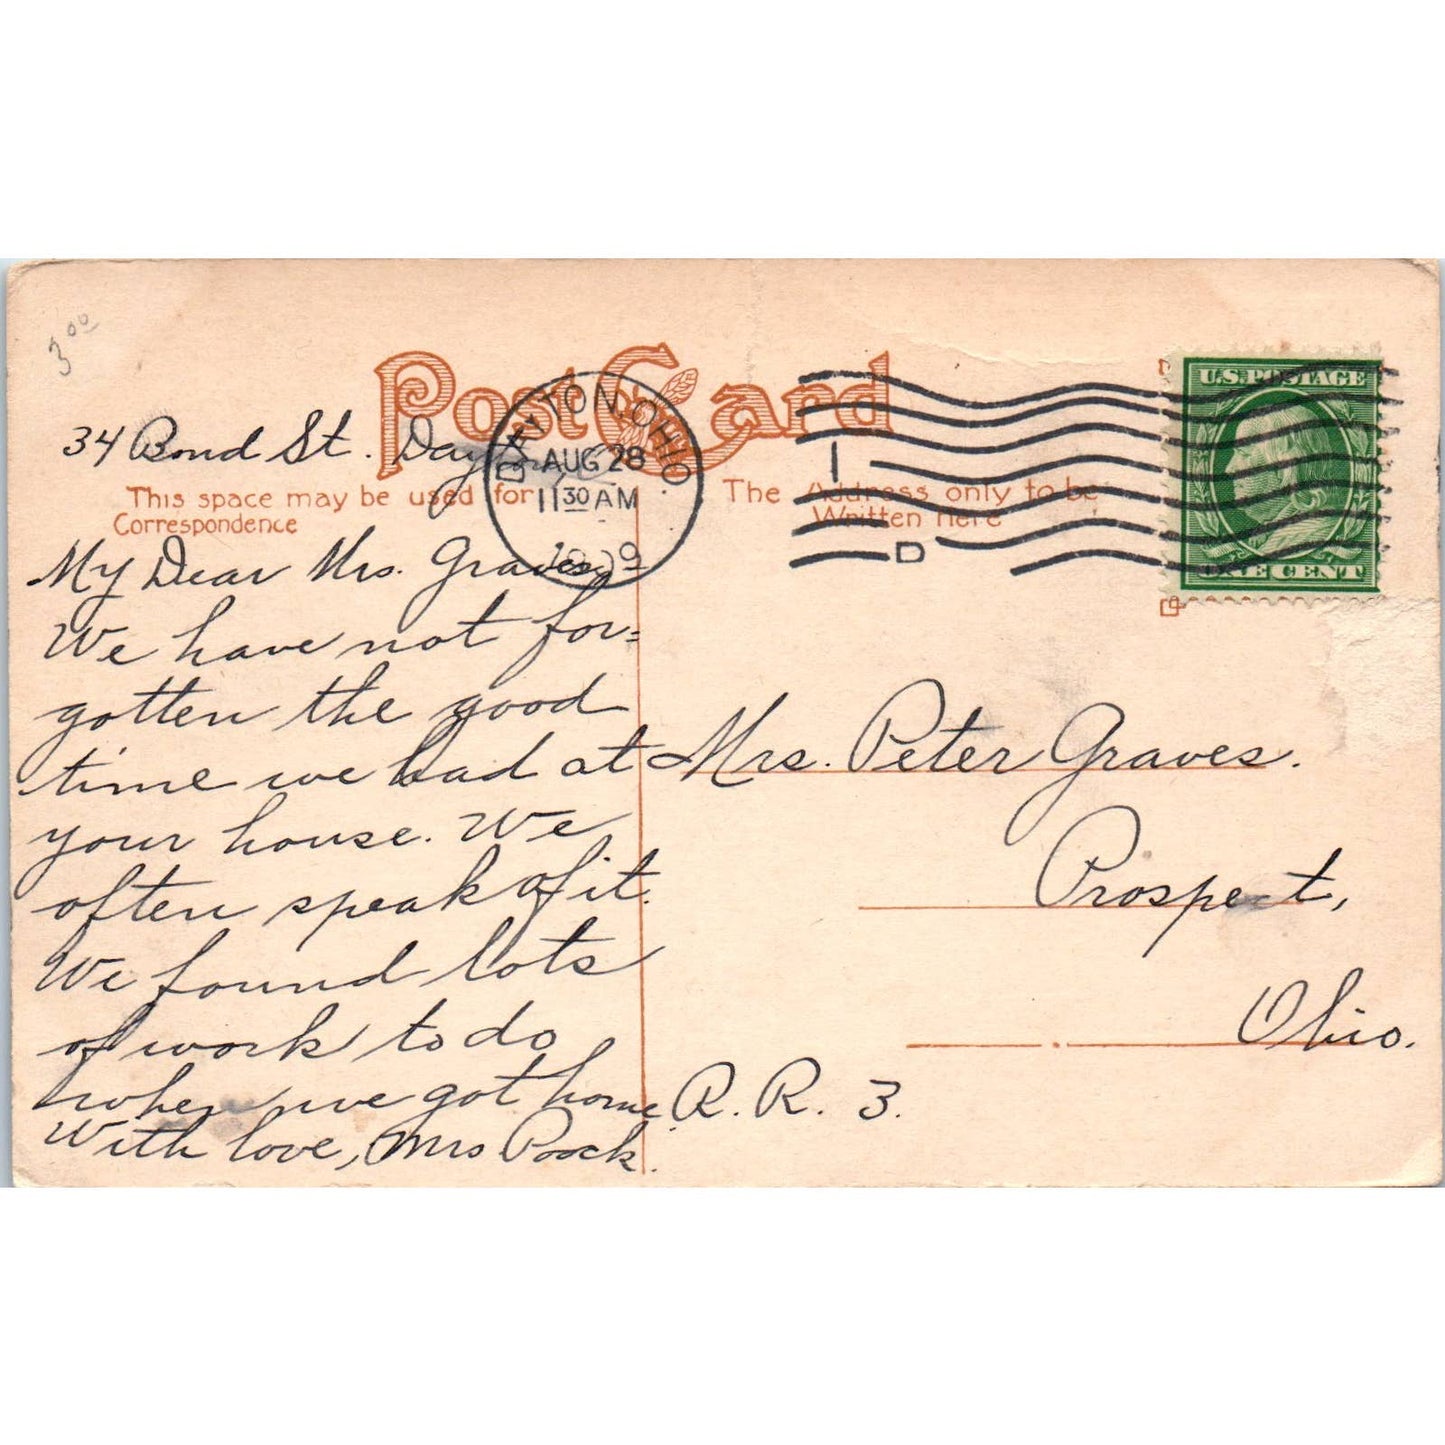 3.00
Post Card
34 Bond St. Dayton, O.
This space may be used for
Correspondence
DAYTON, OHIO.
AUG 28
11 30 AM
1909
1
D
U.S. POSTAGE
ONE CENT
The Address only to be
Written here
My Dear Mrs. Graves,
We have not for=
gotten the good
time we had at
your house. We
often speak of it.
We found lots
of work to do
when we got home.
With love, Mrs Poock.
Mrs. Peter Graves.
Prospect,
Ohio.
R. R. 3.